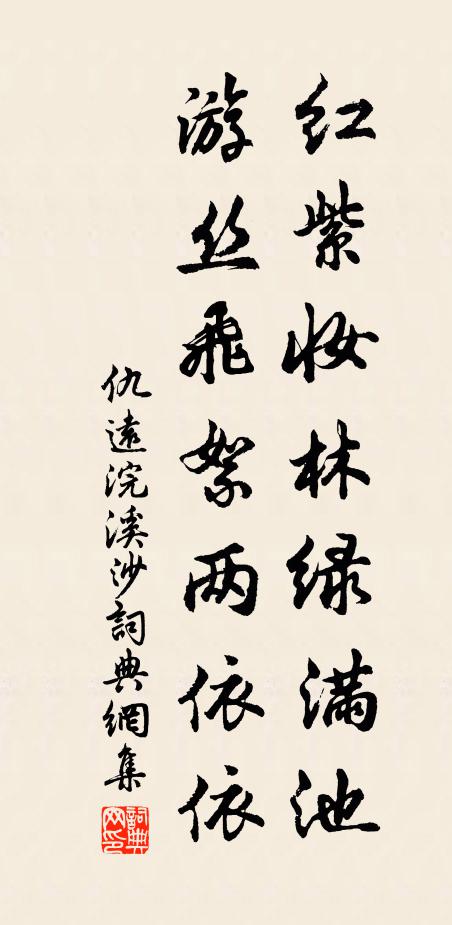 红紫妆林绿满池
游丝飛絮两依依
仇遠浣溪沙詞典網集
詞典网印